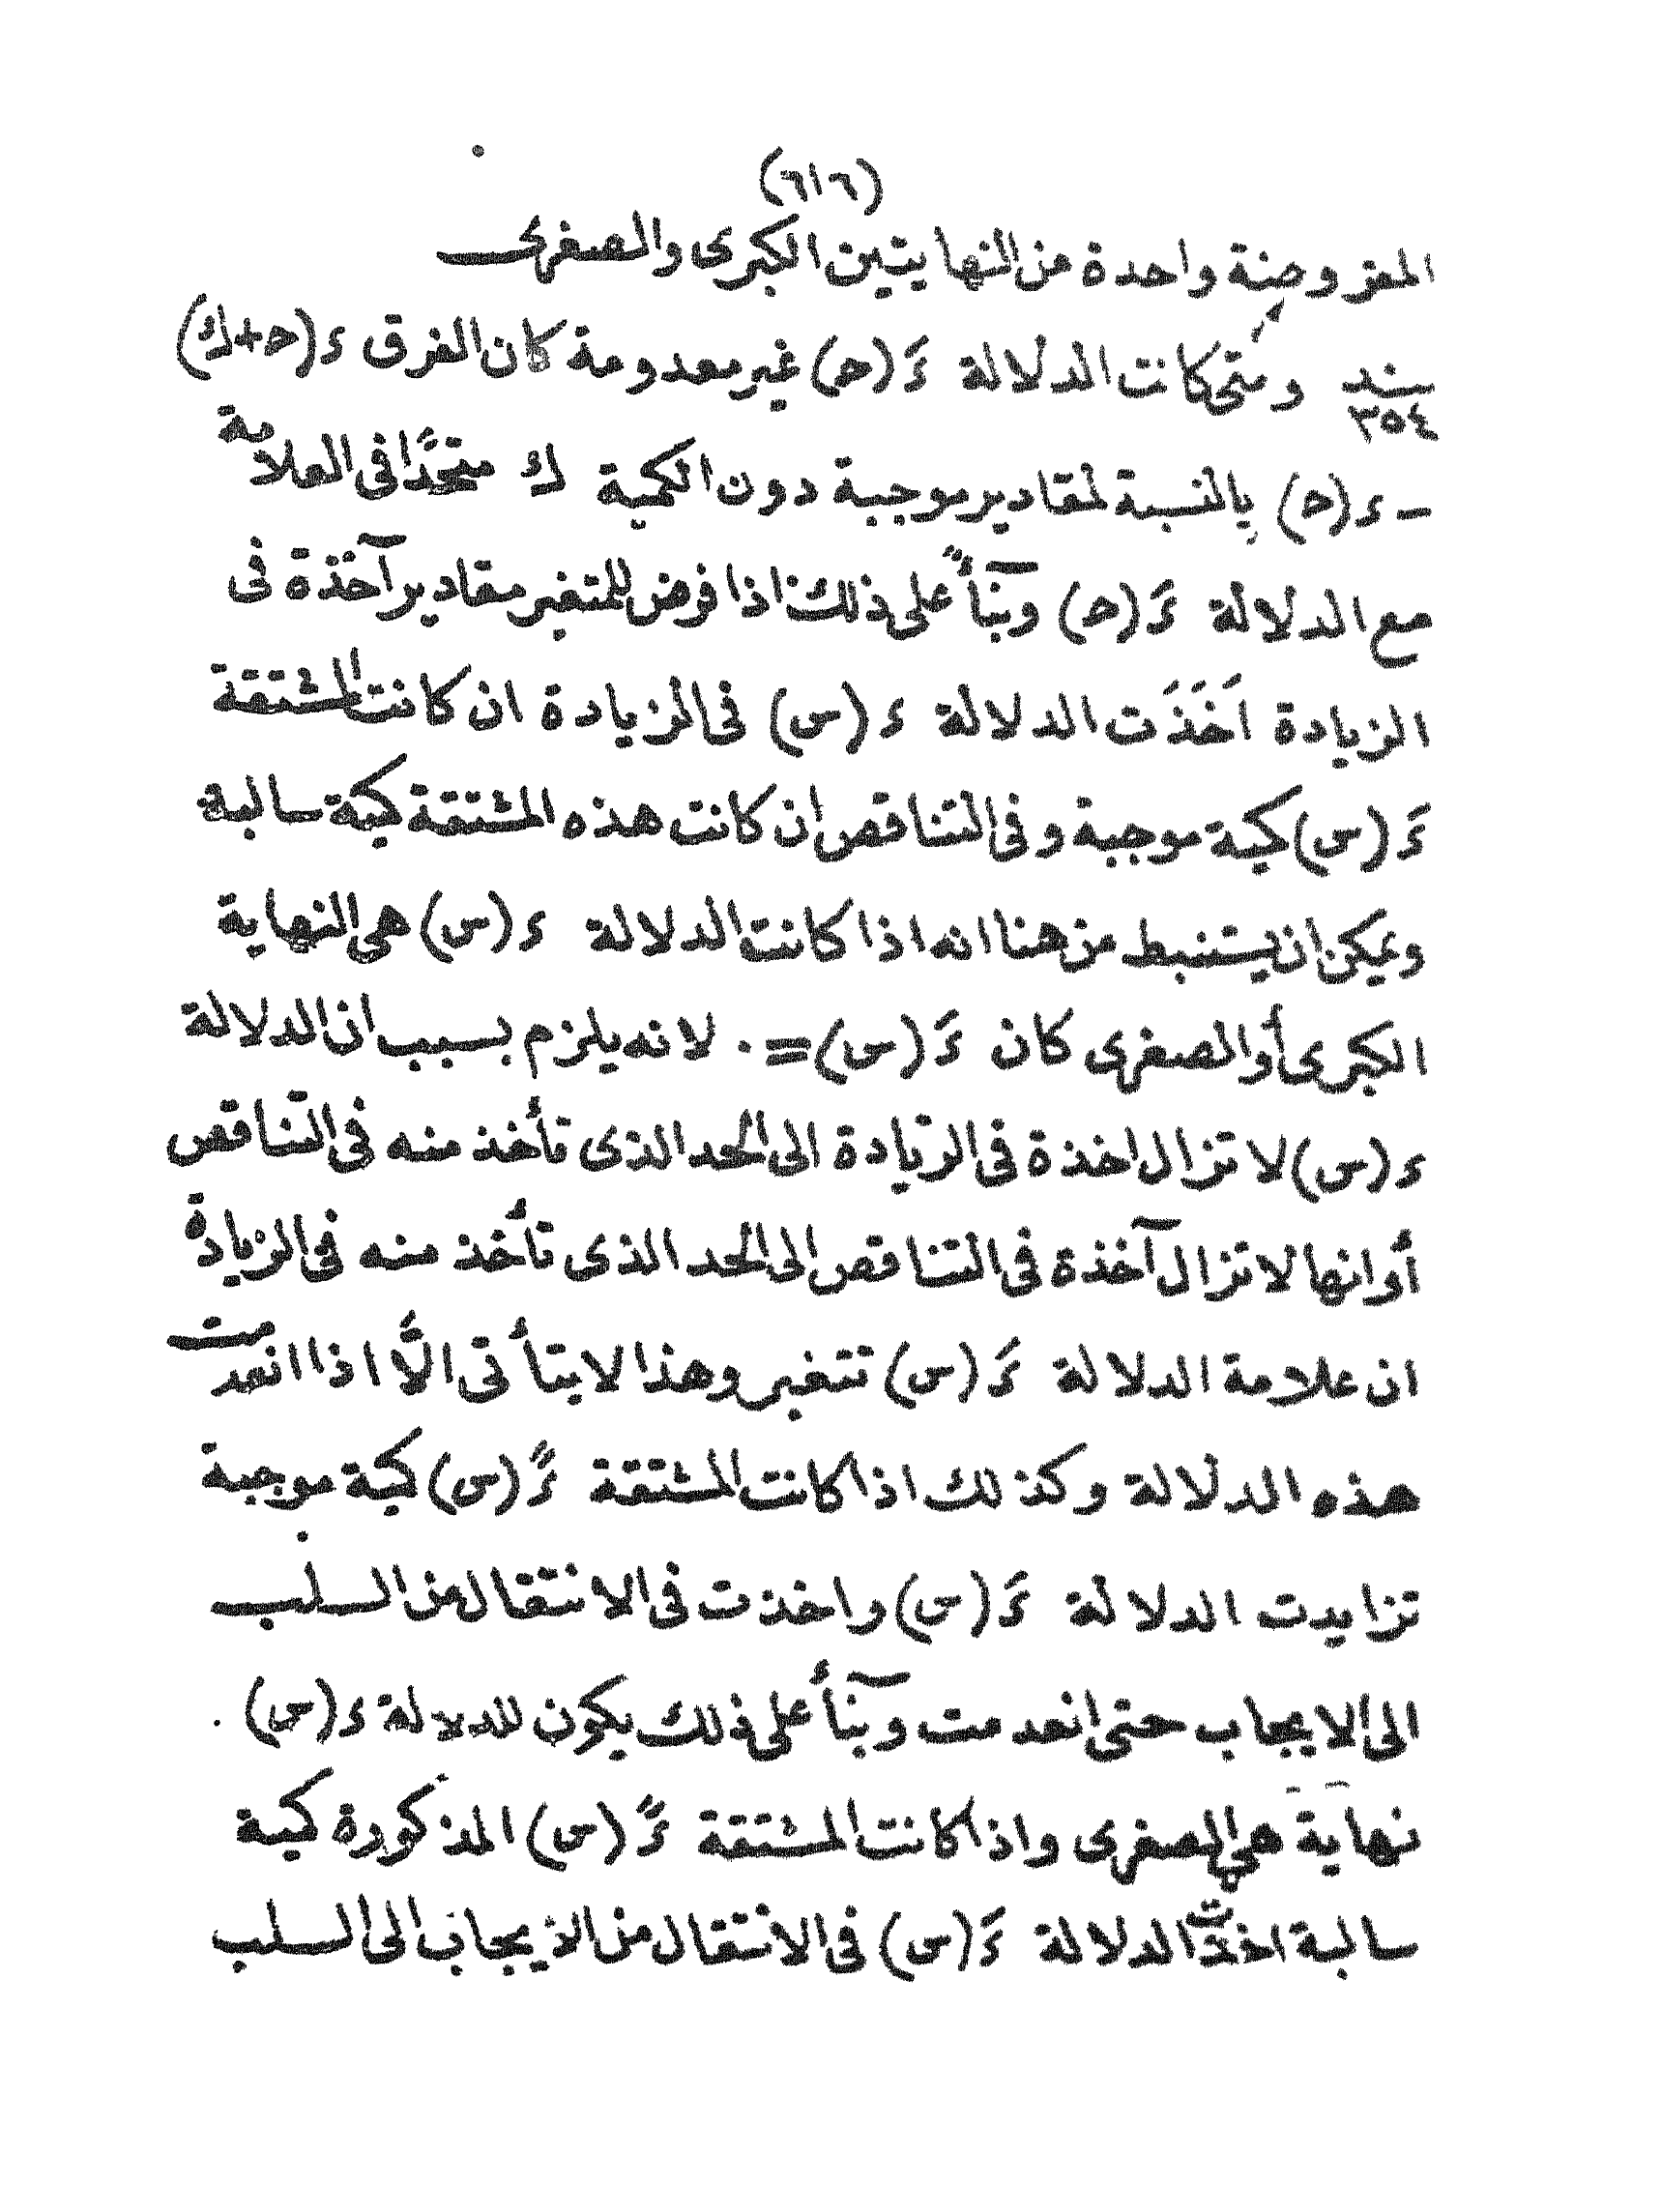 (٦١٦)
المفروضة واحدة من النهايتين الكبرى والصغرى
بند ٣٥٤ ومتى كانت الدلالة ءَ (حـ) غير معدومة كان الفرق ء (حـ+ك)
– ء (حـ) بالنسبة لمقادير موجبة دون الكمية ك متحدًا فى العلامة
مع الدلالة ءَ (حـ) وبنآءً على ذلك اذا فرض للمتغير مقادير آخذة فى
الزيادة اَخَذَت الدلالة ء (س) فى الزيادة ان كانت المشتقة
ءَ (س) كمية موجبة وفى التناقص ان كانت هذه المشتقة كمية سالبة
ويمكن ان يستنبط من هنا انه اذا كانت الدلالة ء (س) هى النهاية
الكبرى أو الصغرى كان ءَ (س) = ٠ لانه يلزم بسبب ان الدلالة
ء (س) لا تزال اخذة فى الزيادة الى الحد الذى تأخذ منه فى التناقص
أو انها لا تزال آخذة فى التناقص الى الحد الذى تأخذ منه فى الزيادة
ان علامة الدلالة ءَ (س) تتغير وهذا لا يتأتى الاَّ اذا انعدمت
هذه الدلالة وكذلك اذا كانت المشتقة ءً (س) كمية موجبة
تزايدت الدلالة ءَ (س) واخذت فى الانتقال من السلب
الى الايجاب حتى انعدمت وبنآءً على ذلك يكون للدلالة ء (س)
نهاية هى الصغرى واذا كانت المشتقة ءً (س) المذكورة كمية
سالبة اخذت الدلالة ءَ (س) فى الانتقال من الايجاب الى السلب